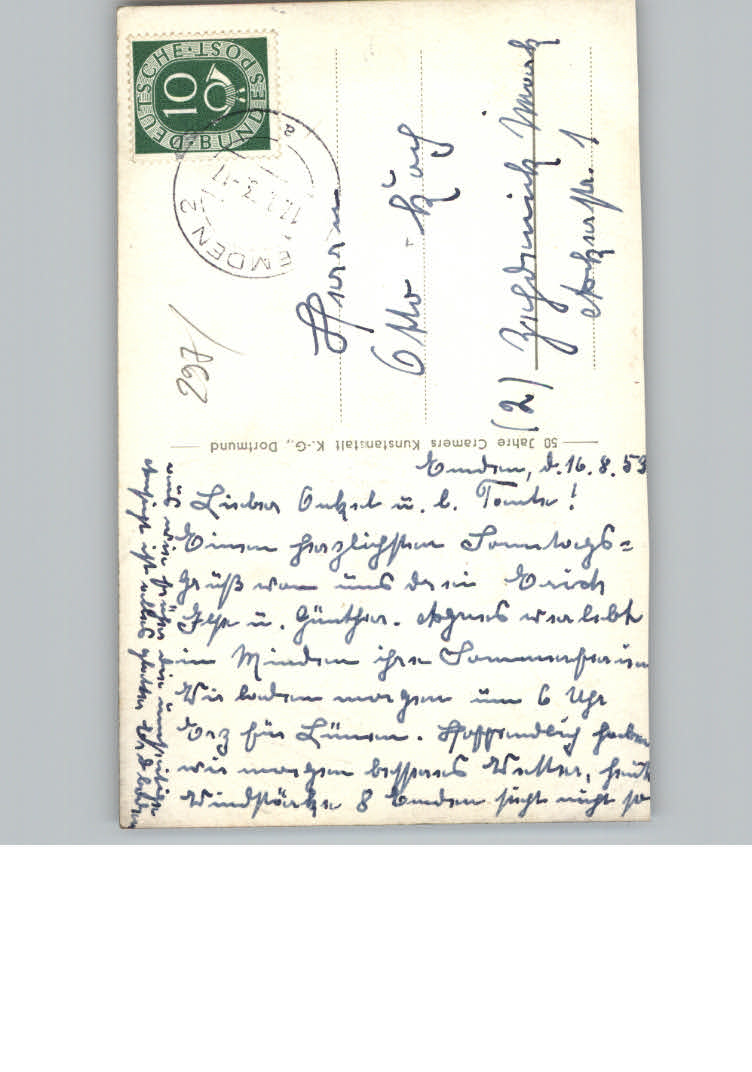 DEUTSCHE · BUNDESPOST
10
EMDEN 2
a
297
Herrn
Otto Koch
(2) Zehdenick Mark
50 Jahre Cramers Kunstanstalt K.-G., Dortmund
Emden, d. 16. 8. 53
Lieber Onkel u. l. Tante!
Einen herzlichsten Sonntags=
gruß von uns drein Erich
Ilse u. Günther. Agnes verlebt
in Minden ihre Sommerferien
Wir laden morgen um 6 Uhr
Erz für Lünen. Hoffendlich haben
wir morgen besseres Wetter, heute
Windstärke 8 Emden sieht nicht so
aus wie früher die
ist alles